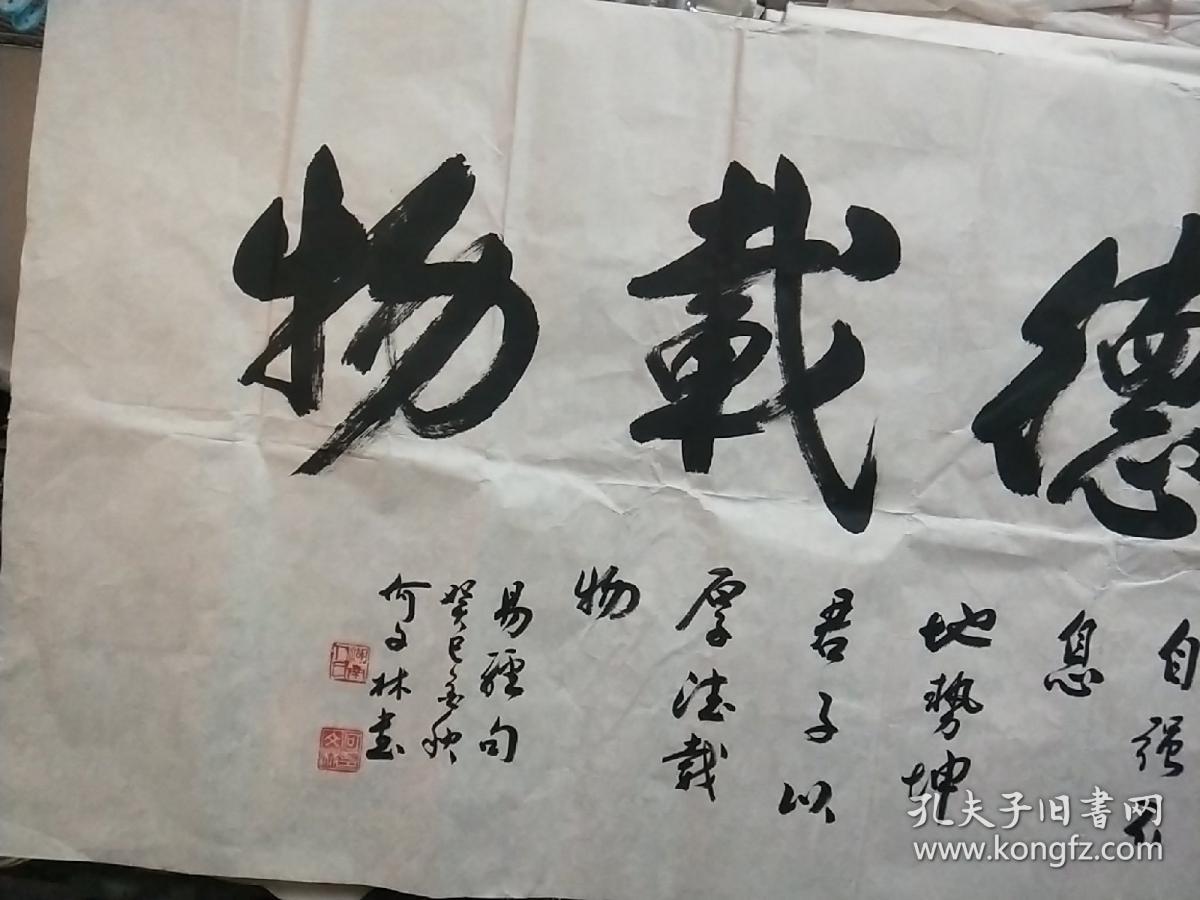 德載物
自强不
息
地势坤
君子以
厚德載
物
易經句
癸巳金秋
何文林書
孔夫子旧書网
www.kongfz.com